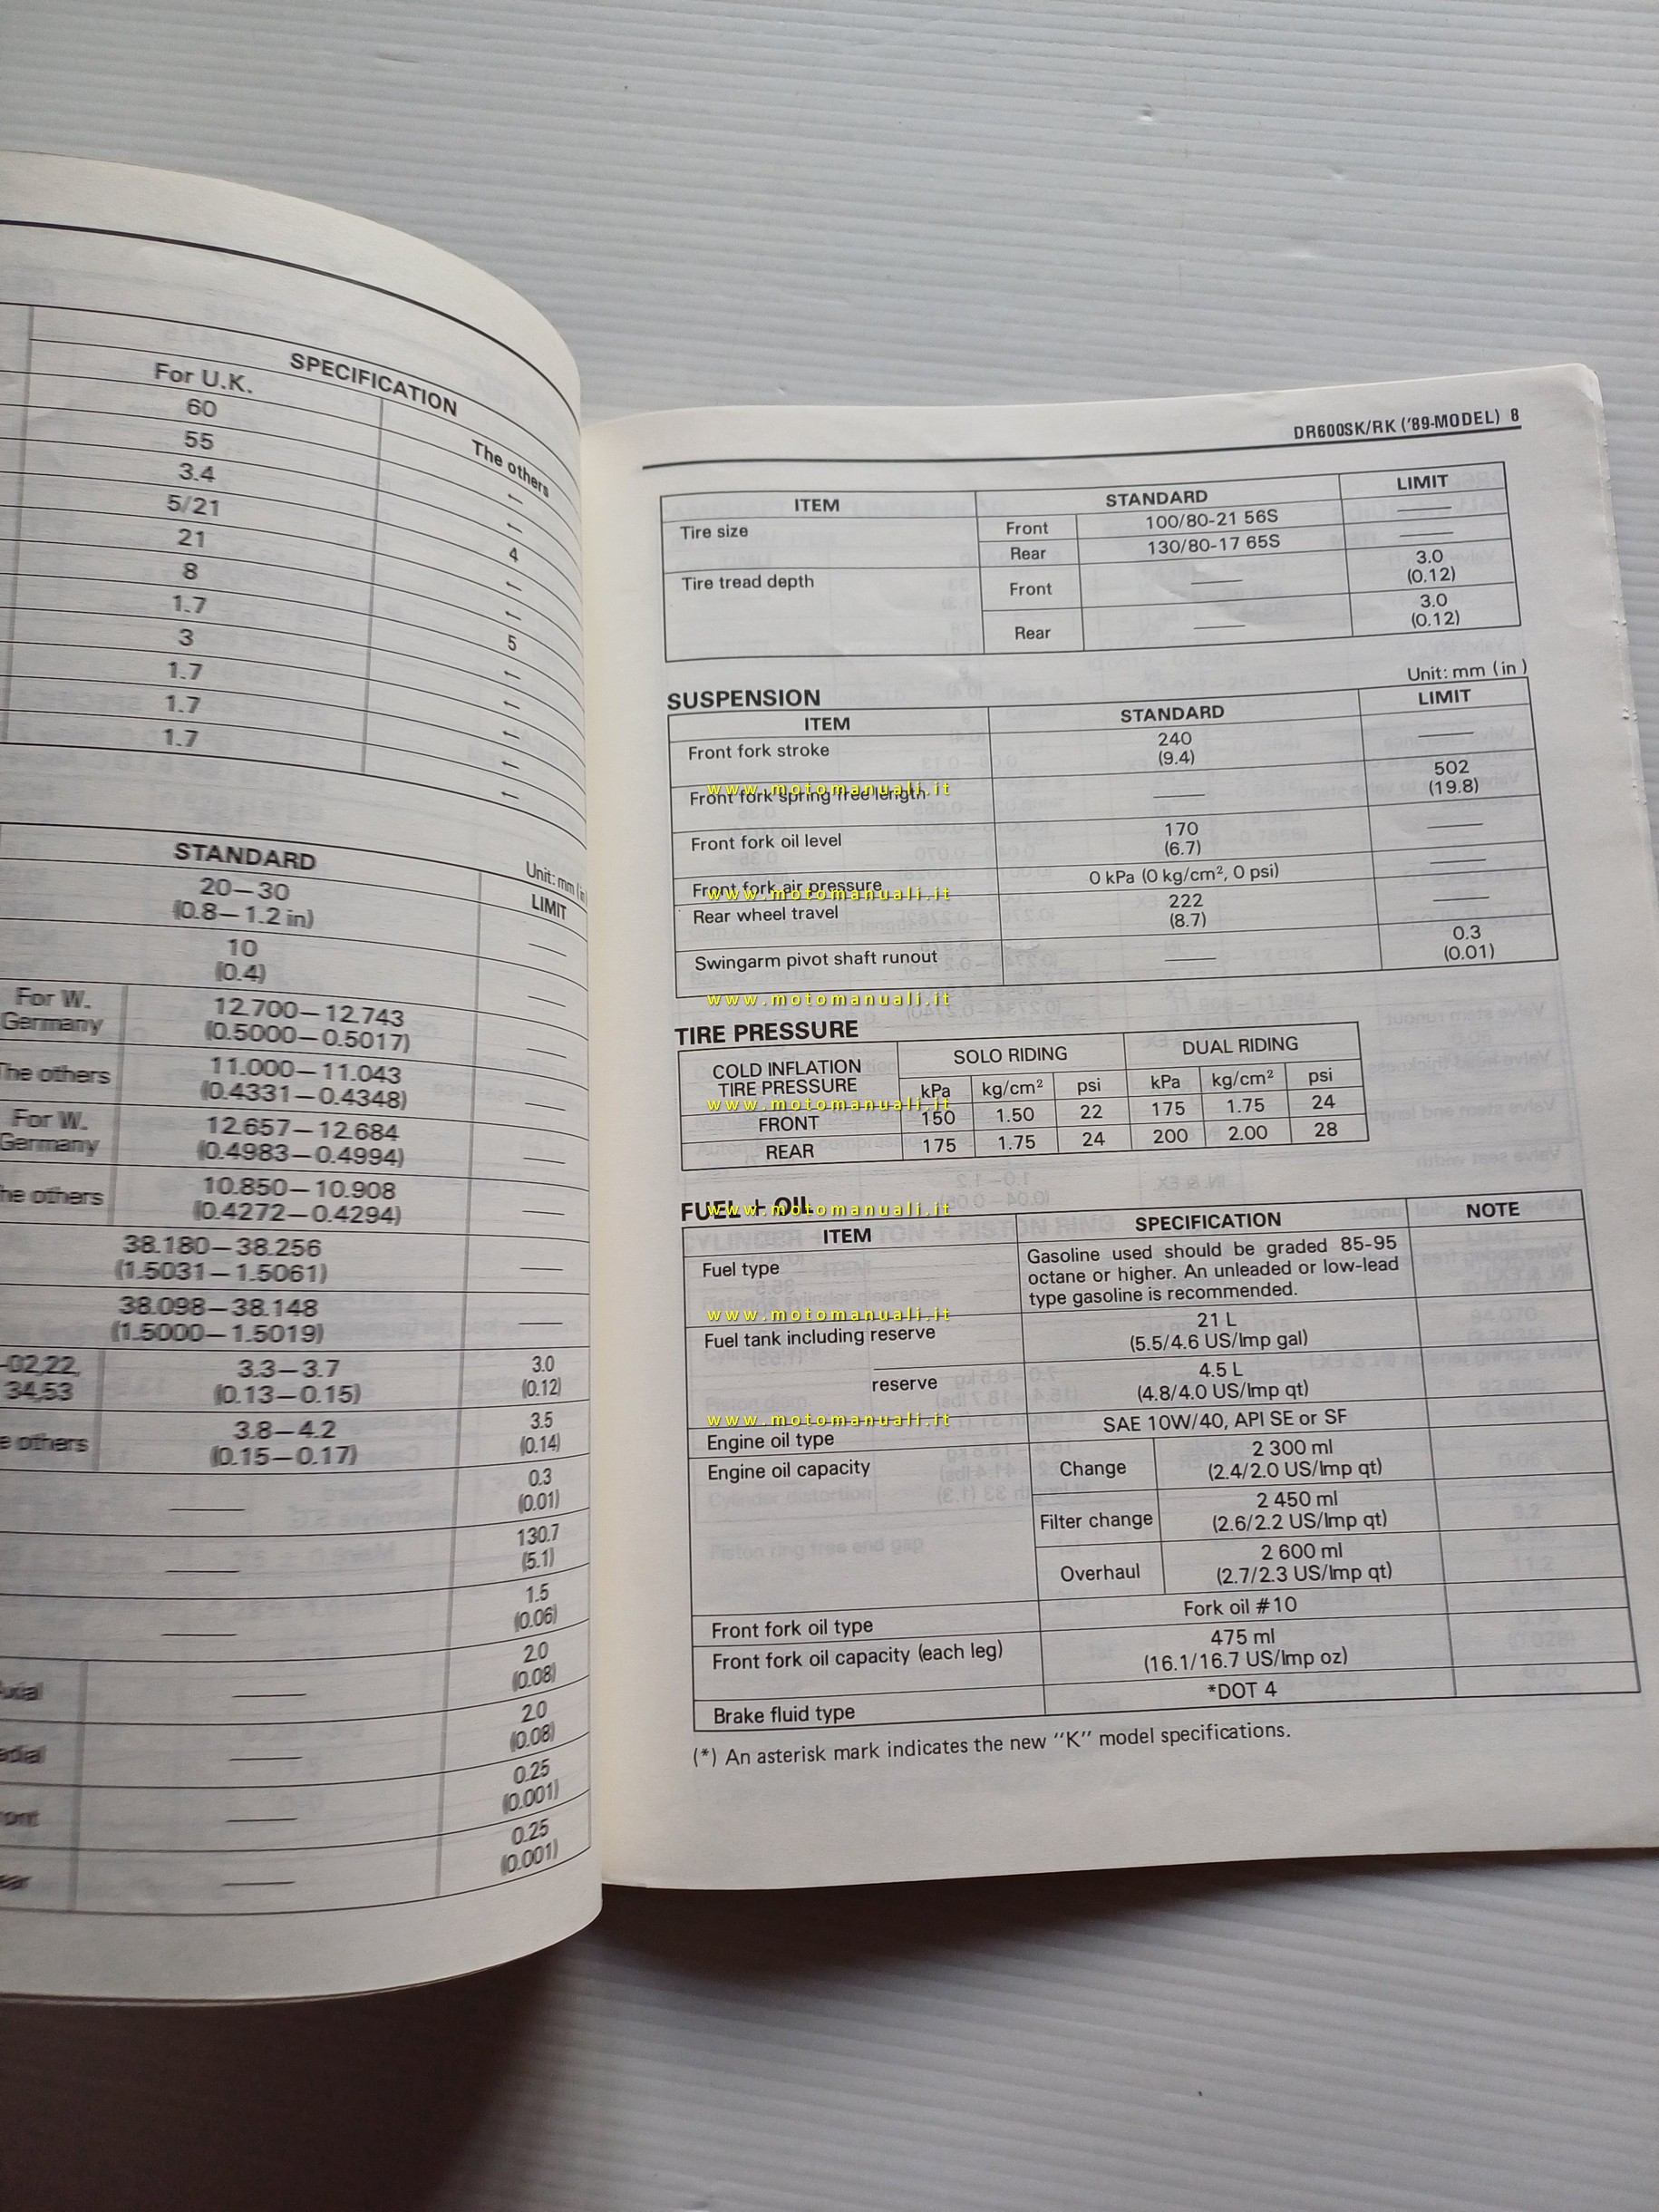 SPECIFICATION
For U.K. The others
60 ←
55 ←
3.4 4
5/21 ←
21 ←
8 5
1.7 ←
3 ←
1.7 ←
1.7 ←
1.7 ←
Unit: mm (in
STANDARD LIMIT
20—30
(0.8—1.2 in)
10
(0.4)
For W. Germany 12.700—12.743
(0.5000—0.5017)
The others 11.000—11.043
(0.4331—0.4348)
For W. Germany 12.657—12.684
(0.4983—0.4994)
he others 10.850—10.908
(0.4272—0.4294)
38.180—38.256
(1.5031—1.5061)
38.098—38.148
(1.5000—1.5019)
-02,22, 3.3—3.7 3.0
34,53 (0.13—0.15) (0.12)
e others 3.8—4.2 3.5
(0.15—0.17) (0.14)
0.3
(0.01)
130.7
(5.1)
1.5
(0.06)
2.0
(0.08)
2.0
(0.08)
0.25
(0.001)
0.25
(0.001)
DR600SK/RK ('89-MODEL) 8
ITEM STANDARD LIMIT
Tire size Front 100/80-21 56S ——
Rear 130/80-17 65S ——
Tire tread depth Front —— 3.0
(0.12)
Rear —— 3.0
(0.12)
SUSPENSION Unit: mm (in)
ITEM STANDARD LIMIT
Front fork stroke 240 ——
(9.4)
Front fork spring free length —— 502
(19.8)
Front fork oil level 170 ——
(6.7)
Front fork air pressure 0 kPa (0 kg/cm², 0 psi) ——
Rear wheel travel 222 ——
(8.7)
Swingarm pivot shaft runout —— 0.3
(0.01)
TIRE PRESSURE
COLD INFLATION SOLO RIDING DUAL RIDING
TIRE PRESSURE kPa kg/cm² psi kPa kg/cm² psi
FRONT 150 1.50 22 175 1.75 24
REAR 175 1.75 24 200 2.00 28
FUEL + OIL
ITEM SPECIFICATION NOTE
Fuel type Gasoline used should be graded 85-95
octane or higher. An unleaded or low-lead
type gasoline is recommended.
Fuel tank including reserve 21 L
(5.5/4.6 US/Imp gal)
reserve 4.5 L
(4.8/4.0 US/Imp qt)
Engine oil type SAE 10W/40, API SE or SF
Engine oil capacity Change 2 300 ml
(2.4/2.0 US/Imp qt)
Filter change 2 450 ml
(2.6/2.2 US/Imp qt)
Overhaul 2 600 ml
(2.7/2.3 US/Imp qt)
Front fork oil type Fork oil #10
Front fork oil capacity (each leg) 475 ml
(16.1/16.7 US/Imp oz)
Brake fluid type *DOT 4
(*) An asterisk mark indicates the new "K" model specifications.
www.motomanuali.it
www.motomanuali.it
www.motomanuali.it
www.motomanuali.it
www.motomanuali.it
www.motomanuali.it
www.motomanuali.it